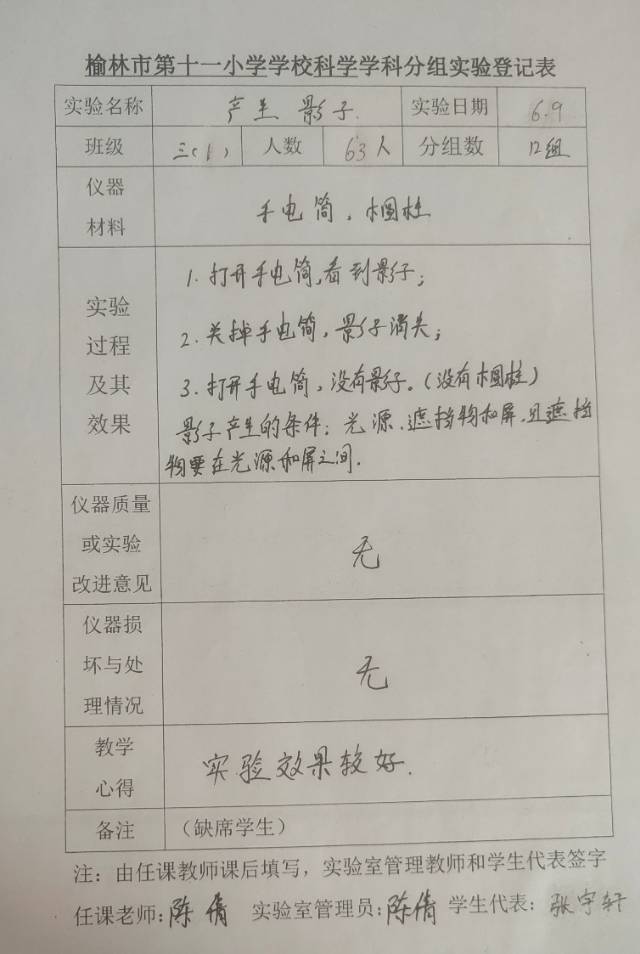 榆林市第十一小学学校科学学科分组实验登记表
实验名称 产生影子 实验日期 6.9
班级 三(1) 人数 63人 分组数 12组
仪器
材料
手电筒、木圆柱
实验
过程
及其
效果
1.打开手电筒,看到影子;
2.关掉手电筒,影子消失;
3.打开手电筒,没有影子。(没有木圆柱)
影子产生的条件:光源、遮挡物和屏,且遮挡
物要在光源和屏之间.
仪器质量
或实验
改进意见
无
仪器损
坏与处
理情况
无
教学
心得
实验效果较好.
备注 (缺席学生)
注:由任课教师课后填写,实验室管理教师和学生代表签字
任课老师:陈倩 实验室管理员:陈倩 学生代表:张宇轩